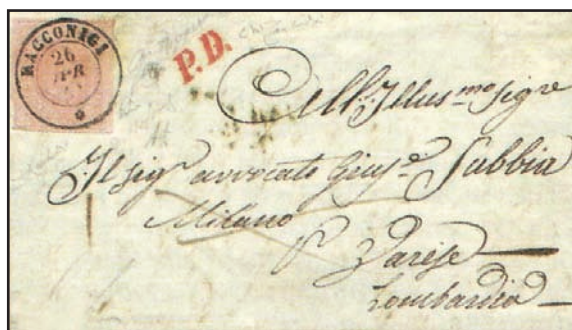 RACCONIGI
26
APR
P.D.
All'Illus.mo Sig.re
Il Sig.r avvocato Gius.e Sabbia
Milano
p Varese
Lombardia